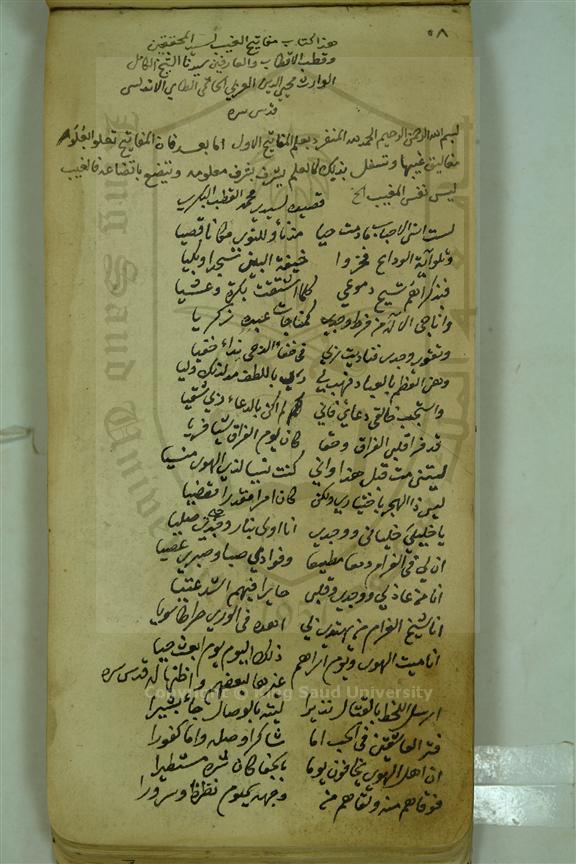 ٥٨
هذا الكتاب مفاتيح الغيب لسيد المحققين
وقطب الاقطاب والعارفين سيدنا الشيخ الكامل
الوارث محيي الدين العربي الحاتمي الطائي الاندلسي
قدس سره
بسم الله الرحمن الرحيم الحمد لله المنفرد بعلم المفاتيح الاول اما بعد فان المفاتيح تعلو العلوم
مغاليق غيبها وتسفل بذلك فالعلم يشرف بشرف معلومه ويتضع باتضاعه فالغيب
ليس نفس المغيب الخ قصيدة لسيدي محمد القطب البكري
لست انسى الاحباب ما دمت حيا مذ نأوا للنوى مكانا قصيا
وتلوا آية الوداع فخروا خيفة البين سجدا وبكيا
فبذكراهم تسيح دموعي كلما اشتقت بكرة وعشيا
واناجي الاله من فرط وجدي كمناجات عبده زكريا
وهن العظم بالبعاد فهب لي رب باللطف من لدنك وليا
واستجب خالقي دعائي فاني لم اكن بالدعاء ربي شقيا
قد فرا قلبي الفراق وحقا كان يوم الفراق شيا فريا
ليتني مت قبل هذا واني كنت نسيا لذي الهوى منسيا
ليس ذا الهجر باختياري ولكن كان امرا مقدرا مقضيا
يا خليلي خلياني ووجدي انا اولى بنار وجدي صليا
ان لي في الغرام دمعا مطيعا وفؤادي صبا وصبري عصيا
انا من عاذلي ووجدي وقلبي حاير ايهم اشد عتيا
انا شيخ الغرام من يهتدي لي اهده في الورى صراطا سويا
انا ميت الهوى ويوم اراهم ذلك اليوم يوم ابعث حيا
غيرها لبعضهم واظنها له قدس سره
ارسل اللحظ بالقتال نذيرا ليته بالوصال جاء بشيرا
شاكرا وصله واما كفورا
ان اهل الهوى يخافون يوما بالجفا كان شره مستطيرا
نظرة وسرورا
Copyright © King Saud University